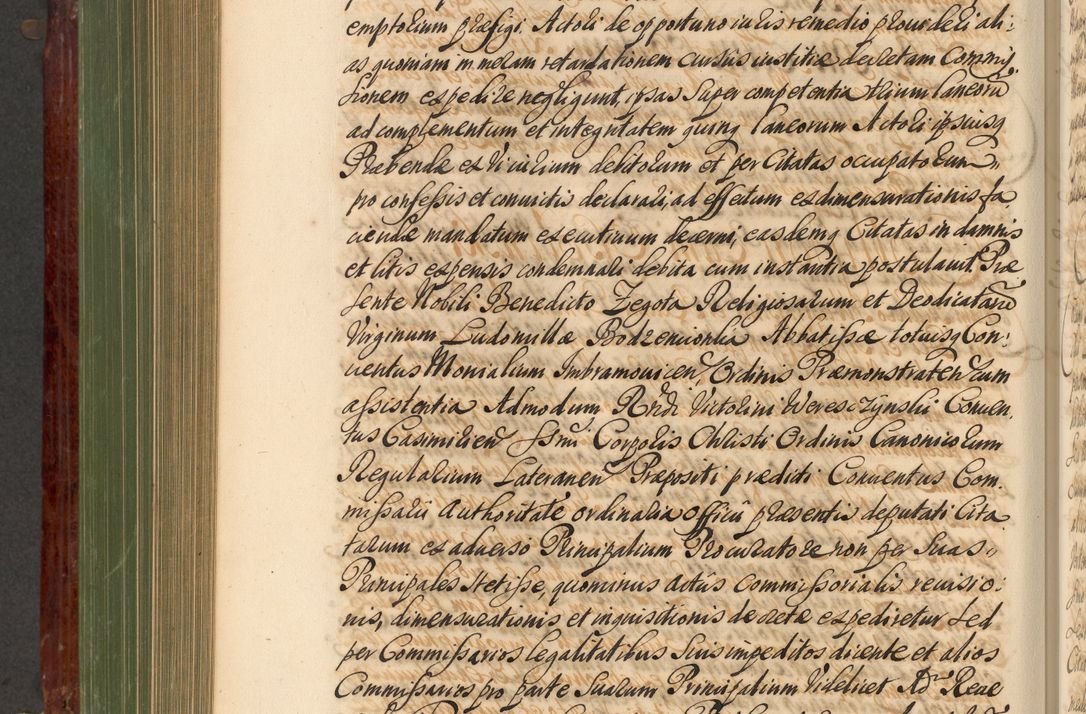 emptorium præfigi. Actori de opportuno iuris remedio prouideri ali:
as quoniam in meram retardationem cursus iustitiæ decretam Commis
sionem expedire negligunt, ipsas super competentia trium laneorũ
ad complementum et integritatem quinq laneorum Actori ipsiusq
Præbendæ ex Viuirium debitorum et per Citatas occupatorum,
pro confessis et conuictis declarari, ad effectum exdimensurationis fa
ciendæ mandatum executiuum decerni, easdemq Citatas in damnis
et litis expensis condemnari debita cum instantia postulauit. Præ
sente Nobili Benedicto Zegota Religiosarum et Deodicatarũ
Virginum Ludomillæ Bodzenionlia Abbatissæ totiusq Con:
uentus Monialium Imbramouicen Ordinis Præmonstraten cum
assistentia Admodum Rndi Victorini Veresczynski Conuen,
tus Casimirien SSmi Corporis Christi Ordinis Canonicorum
Regularium Lateranen Præpositi prædicti Conuentus Com.
missarii authoritate ordinaria officii præsentis deputati Cita
tarum ex aduerso Principalium Procuratore non per suas
Principales stetisse, quominus actus Commissorialis reuisio:
nis, dimensurationis et inquisitionis decretæ expediretur sed
per Commissarios legalitatibus suis impeditos dicente et alios
Commissarios pro parte suarum Principalium Videlicet Adm Reue